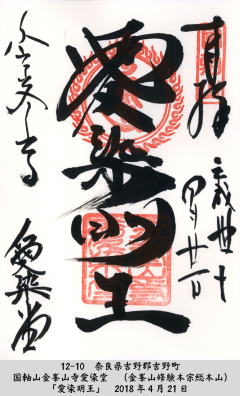 奉拝
平成三十年
四月廿一日
愛染明王
金峯山寺
愛染堂
12-10 奈良県吉野郡吉野町
国軸山金峯山寺愛染堂 (金峯山修験本宗総本山)
「愛染明王」 2018年4月21日